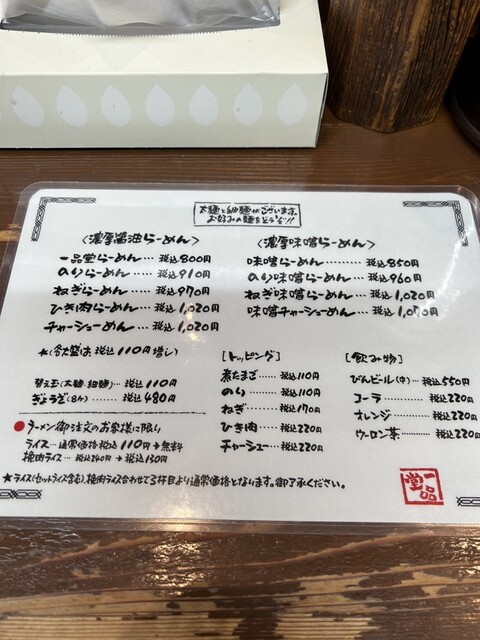 太麺と細麺がございます。
お好みの麺をどうぞ!!
〈濃厚醤油らーめん〉
一品堂らーめん… 税込800円
のりらーめん…… 税込910円
ねぎらーめん… 税込970円
ひき肉らーめん… 税込1,020円
チャーシューめん… 税込1,020円
★(各大盛は 税込110円増し)
替え玉(太麺・細麺)… 税込110円
ぎょうざ(8ケ)…… 税込480円
●ラーメン御注文のお客様に限り
ライス…通常価格税込110円→無料
挽肉ライス… 税込240円→税込130円
〈濃厚味噌らーめん〉
味噌らーめん……… 税込850円
のり味噌らーめん… 税込960円
ねぎ味噌らーめん… 税込1,020円
味噌チャーシューめん… 税込1,070円
[トッピング]
煮たまご…… 税込110円
のり………… 税込110円
ねぎ………… 税込170円
ひき肉……… 税込220円
チャーシュー… 税込220円
[飲み物]
びんビール(中)… 税込550円
コーラ………… 税込220円
オレンジ……… 税込220円
ウーロン茶…… 税込220円
★ライス(セットライス含む)、挽肉ライス合わせて3杯目より通常価格となります。御了承ください。
一品堂